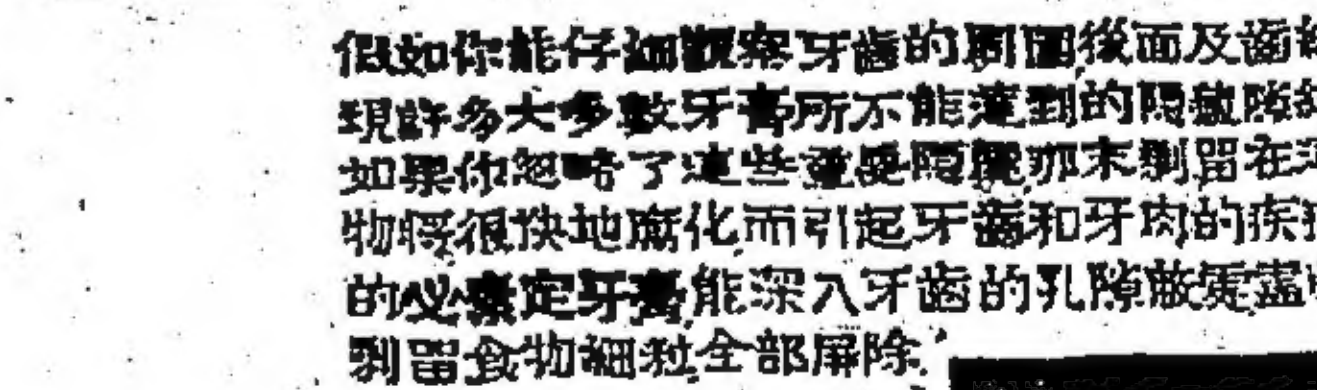 假如你能仔細觀察牙齒的周圍後面及齒
現許多大多數牙膏所不能達到的隱藏隙
如果你忽略了這些重要隱處那末剩留在
物將很快地腐化而引起牙齒和牙肉的疾
的必素定牙膏能深入牙齒的孔隙故
剩留食物細粒全部屏除